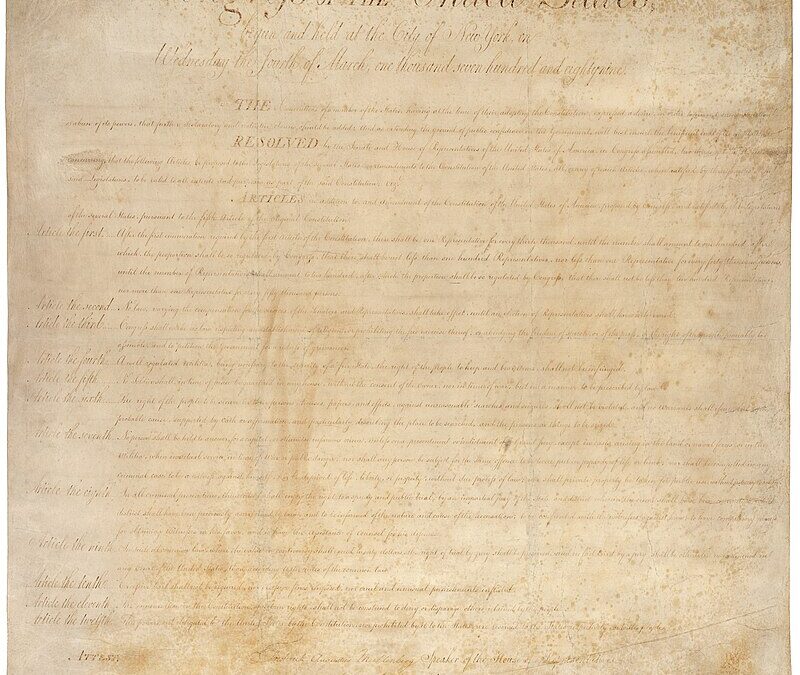 Congress OF THE United States,
begun and held at the City of New York, on
Wednesday the fourth of March, one thousand seven hundred and eighty nine.
THE Conventions of a number of the States, having at the time of their adopting the Constitution, expressed a desire, in order to prevent
or abuse of its powers, that further declaratory and restrictive clauses should be added: And as extending the ground of public confidence in the Government, will best ensure the beneficent ends of its
RESOLVED by the Senate and House of Representatives of the United States of America, in Congress assembled,
concurring, that the following Articles be proposed to the Legislatures of the several States, as amendments to the Constitution of the United States, all, or any of which Articles, when ratified by three fourths of the
said Legislatures, to be valid to all intents and purposes, as part of the said Constitution; viz.
ARTICLES in addition to, and amendment of the Constitution of the United States of America, proposed by Congress, and ratified by the Legislatures
of the several States, pursuant to the fifth Article of the original Constitution.
Article the first... After the first enumeration required by the first Article of the Constitution, there shall be one Representative for every thirty thousand, until the number shall amount to one hundred, after
which, the proportion shall be so regulated by Congress, that there shall be not less than one hundred Representatives, nor less than one Representative for every forty thousand persons,
until the number of Representatives shall amount to two hundred, after which the proportion shall be so regulated by Congress, that there shall not be less than two hundred Representatives,
nor more than one Representative for every fifty thousand persons.
Article the second... No law, varying the compensation for the services of the Senators and Representatives, shall take effect, until an election of Representatives shall have intervened.
Article the third... Congress shall make no law respecting an establishment of religion, or prohibiting the free exercise thereof; or abridging the freedom of speech, or of the press; or the right of the people peaceably to
assemble, and to petition the Government for a redress of grievances.
Article the fourth... A well regulated militia, being necessary to the security of a free State, the right of the people to keep and bear arms, shall not be infringed.
Article the fifth... No Soldier shall, in time of peace be quartered in any house, without the consent of the owner, nor in time of war, but in a manner to be prescribed by law.
Article the sixth... The right of the people to be secure in their persons, houses, papers, and effects, against unreasonable searches and seizures, shall not be violated, and no warrants shall issue, but upon
probable cause, supported by oath or affirmation, and particularly describing the place to be searched, and the persons or things to be seized.
Article the seventh... No person shall be held to answer for a capital, or otherwise infamous crime, unless on a presentment or indictment of a Grand Jury, except in cases arising in the land or naval forces, or in the
Militia, when in actual service in time of War or public danger; nor shall any person be subject for the same offence to be twice put in jeopardy of life or limb; nor shall be compelled in any
criminal case to be a witness against himself, nor be deprived of life, liberty, or property, without due process of law; nor shall private property be taken for public use without just compensation.
Article the eighth... In all criminal prosecutions, the accused shall enjoy the right to a speedy and public trial, by an impartial jury of the State and district wherein the crime shall have been committed, which
district shall have been previously ascertained by law, and to be informed of the nature and cause of the accusation; to be confronted with the witnesses against him; to have compulsory process
for obtaining witnesses in his favor, and to have the assistance of counsel for his defence.
Article the ninth... In suits at common law, where the value in controversy shall exceed twenty dollars, the right of trial by jury shall be preserved, and no fact tried by a jury, shall be otherwise re-examined in
any Court of the United States, than according to the rules of the common law.
Article the tenth... Excessive bail shall not be required, nor excessive fines imposed, nor cruel and unusual punishments inflicted.
Article the eleventh... The enumeration in the Constitution, of certain rights, shall not be construed to deny or disparage others retained by the people.
Article the twelfth... The powers not delegated to the United States by the Constitution, nor prohibited by it to the States, are reserved to the States respectively, or to the people.
ATTEST,
Frederick Augustus Muhlenberg Speaker of the House of Representatives